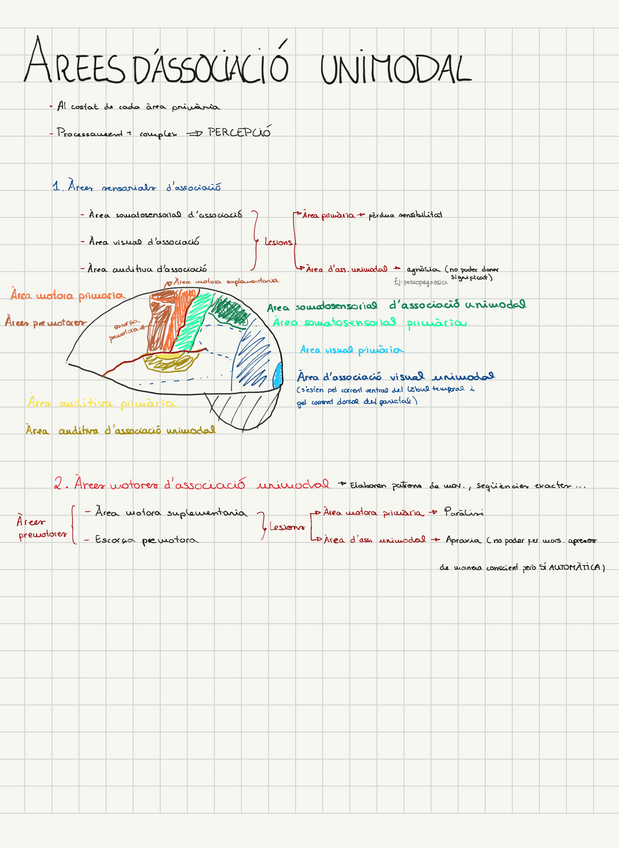 AREES D'ASSOCIACIÓ UNIMODAL
- Al costat de cada àrea primària
- Processament + complex ⇒ PERCEPCIÓ
1. Àrees sensorials d'associació
- Àrea somatosensorial d'associació
- Àrea visual d'associació
- Àrea auditiva d'associació
Lesions
Àrea primària → pèrdua sensibilitat
Àrea d'ass. unimodal → agnòsia (no poder donar
significat)
Ej: prosopagnosia
Àrea motora suplementaria
Àrea motora primaria
Àrees premotores
escorça
premotora
Àrea somatosensorial d'associació unimodal
Àrea somatosensorial primària
Àrea visual primària
Àrea d'associació visual unimodal
(s'estén pel corrent ventral del lóbul temporal i
pel corrent dorsal del parietal)
Àrea auditiva primària
Àrea auditiva d'associació unimodal
2. Àrees motores d'associació unimodal → Elaboren patrons de mov., seqüències exactes...
Àrees
premotores
- Àrea motora suplementaria
- Escorça premotora
Lesions
Àrea motora primària → Paràlisi
Àrea d'ass unimodal → Apraxia (no poder fer movs. apresos
de manera conscient però SÍ AUTOMÀTICA)